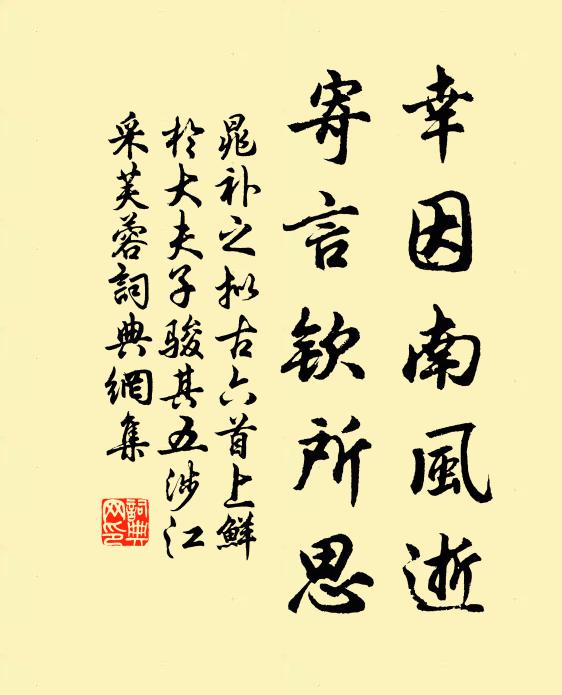 幸因南風逝
寄言欽所思
晁补之拟古六首上鮮
於大夫子駿其五涉江
采芙蓉詞典網集
詞典网印